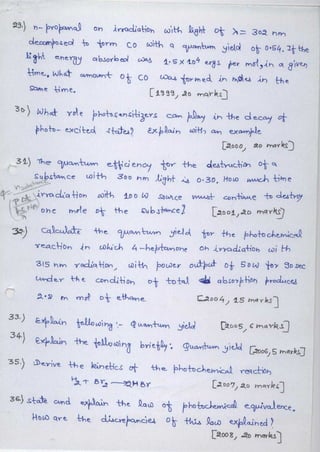 29.) n-propanal on irradiation with light of λ = 302 nm
decomposed to form CO with a quantum yield of 0.54. If the
light energy absorbed was 1.5 x 10⁹ ergs per mol, in a given
time, What amount of CO was formed in moles in the
same time.
[1999, 20 marks]
30.) What role photosensitizers can play in the decay of
photo-excited states? Explain with an example
[2000, 20 marks]
31) The quantum efficiency for the destruction of a
substance with 300 nm light is 0.30. How much time
irradiation with 100 W source must continue to destroy
one mole of the substance? [2001, 20 marks]
32) Calculate the quantum yield for the photochemical
reaction in which 4-heptanone on irradiation with
315 nm radiation, with power output of 50W for 30 sec
under the condition of total absorption produces
2.8 m mol of ethane. [2004, 15 marks]
33.) Explain following :- Quantum yield [2005, 6 marks]
34) Explain the following briefly: Quantum yield [2006, 5 marks]
35.) Derive the kinetics of the photochemical reaction
H₂ + Br₂ → 2HBr [2007, 20 marks]
36) state and explain the law of photochemical equivalence.
How are the discrepancies of this law explained?
[2008, 20 marks]